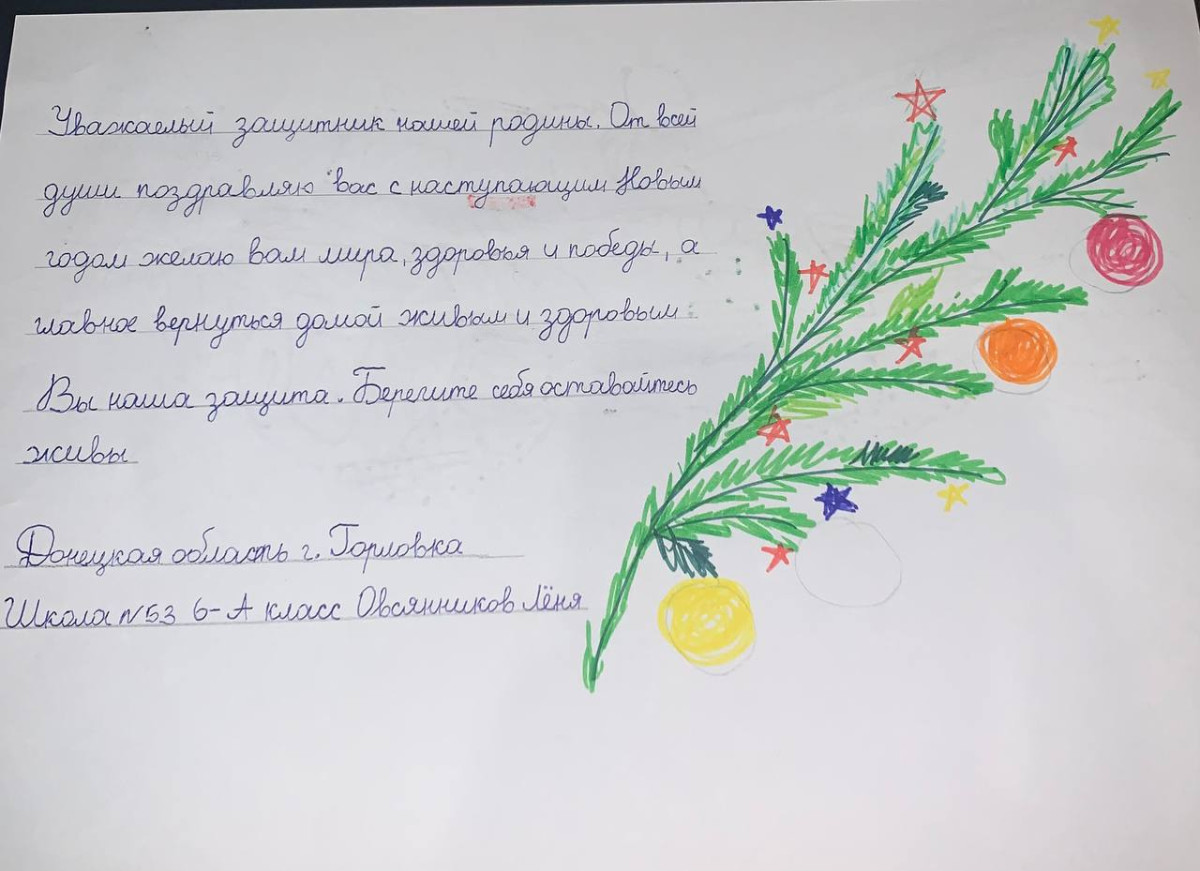 Уважаемый защитник нашей родины. От всей
души поздравляю вас с наступающим Новым
годом желаю вам мира, здоровья и победы, а
главное вернуться домой живым и здоровым
Вы наша защита. Берегите себя оставайтесь
живы
Донецкая область г. Горловка
Школа №53 6-А класс Овсянников Лёня